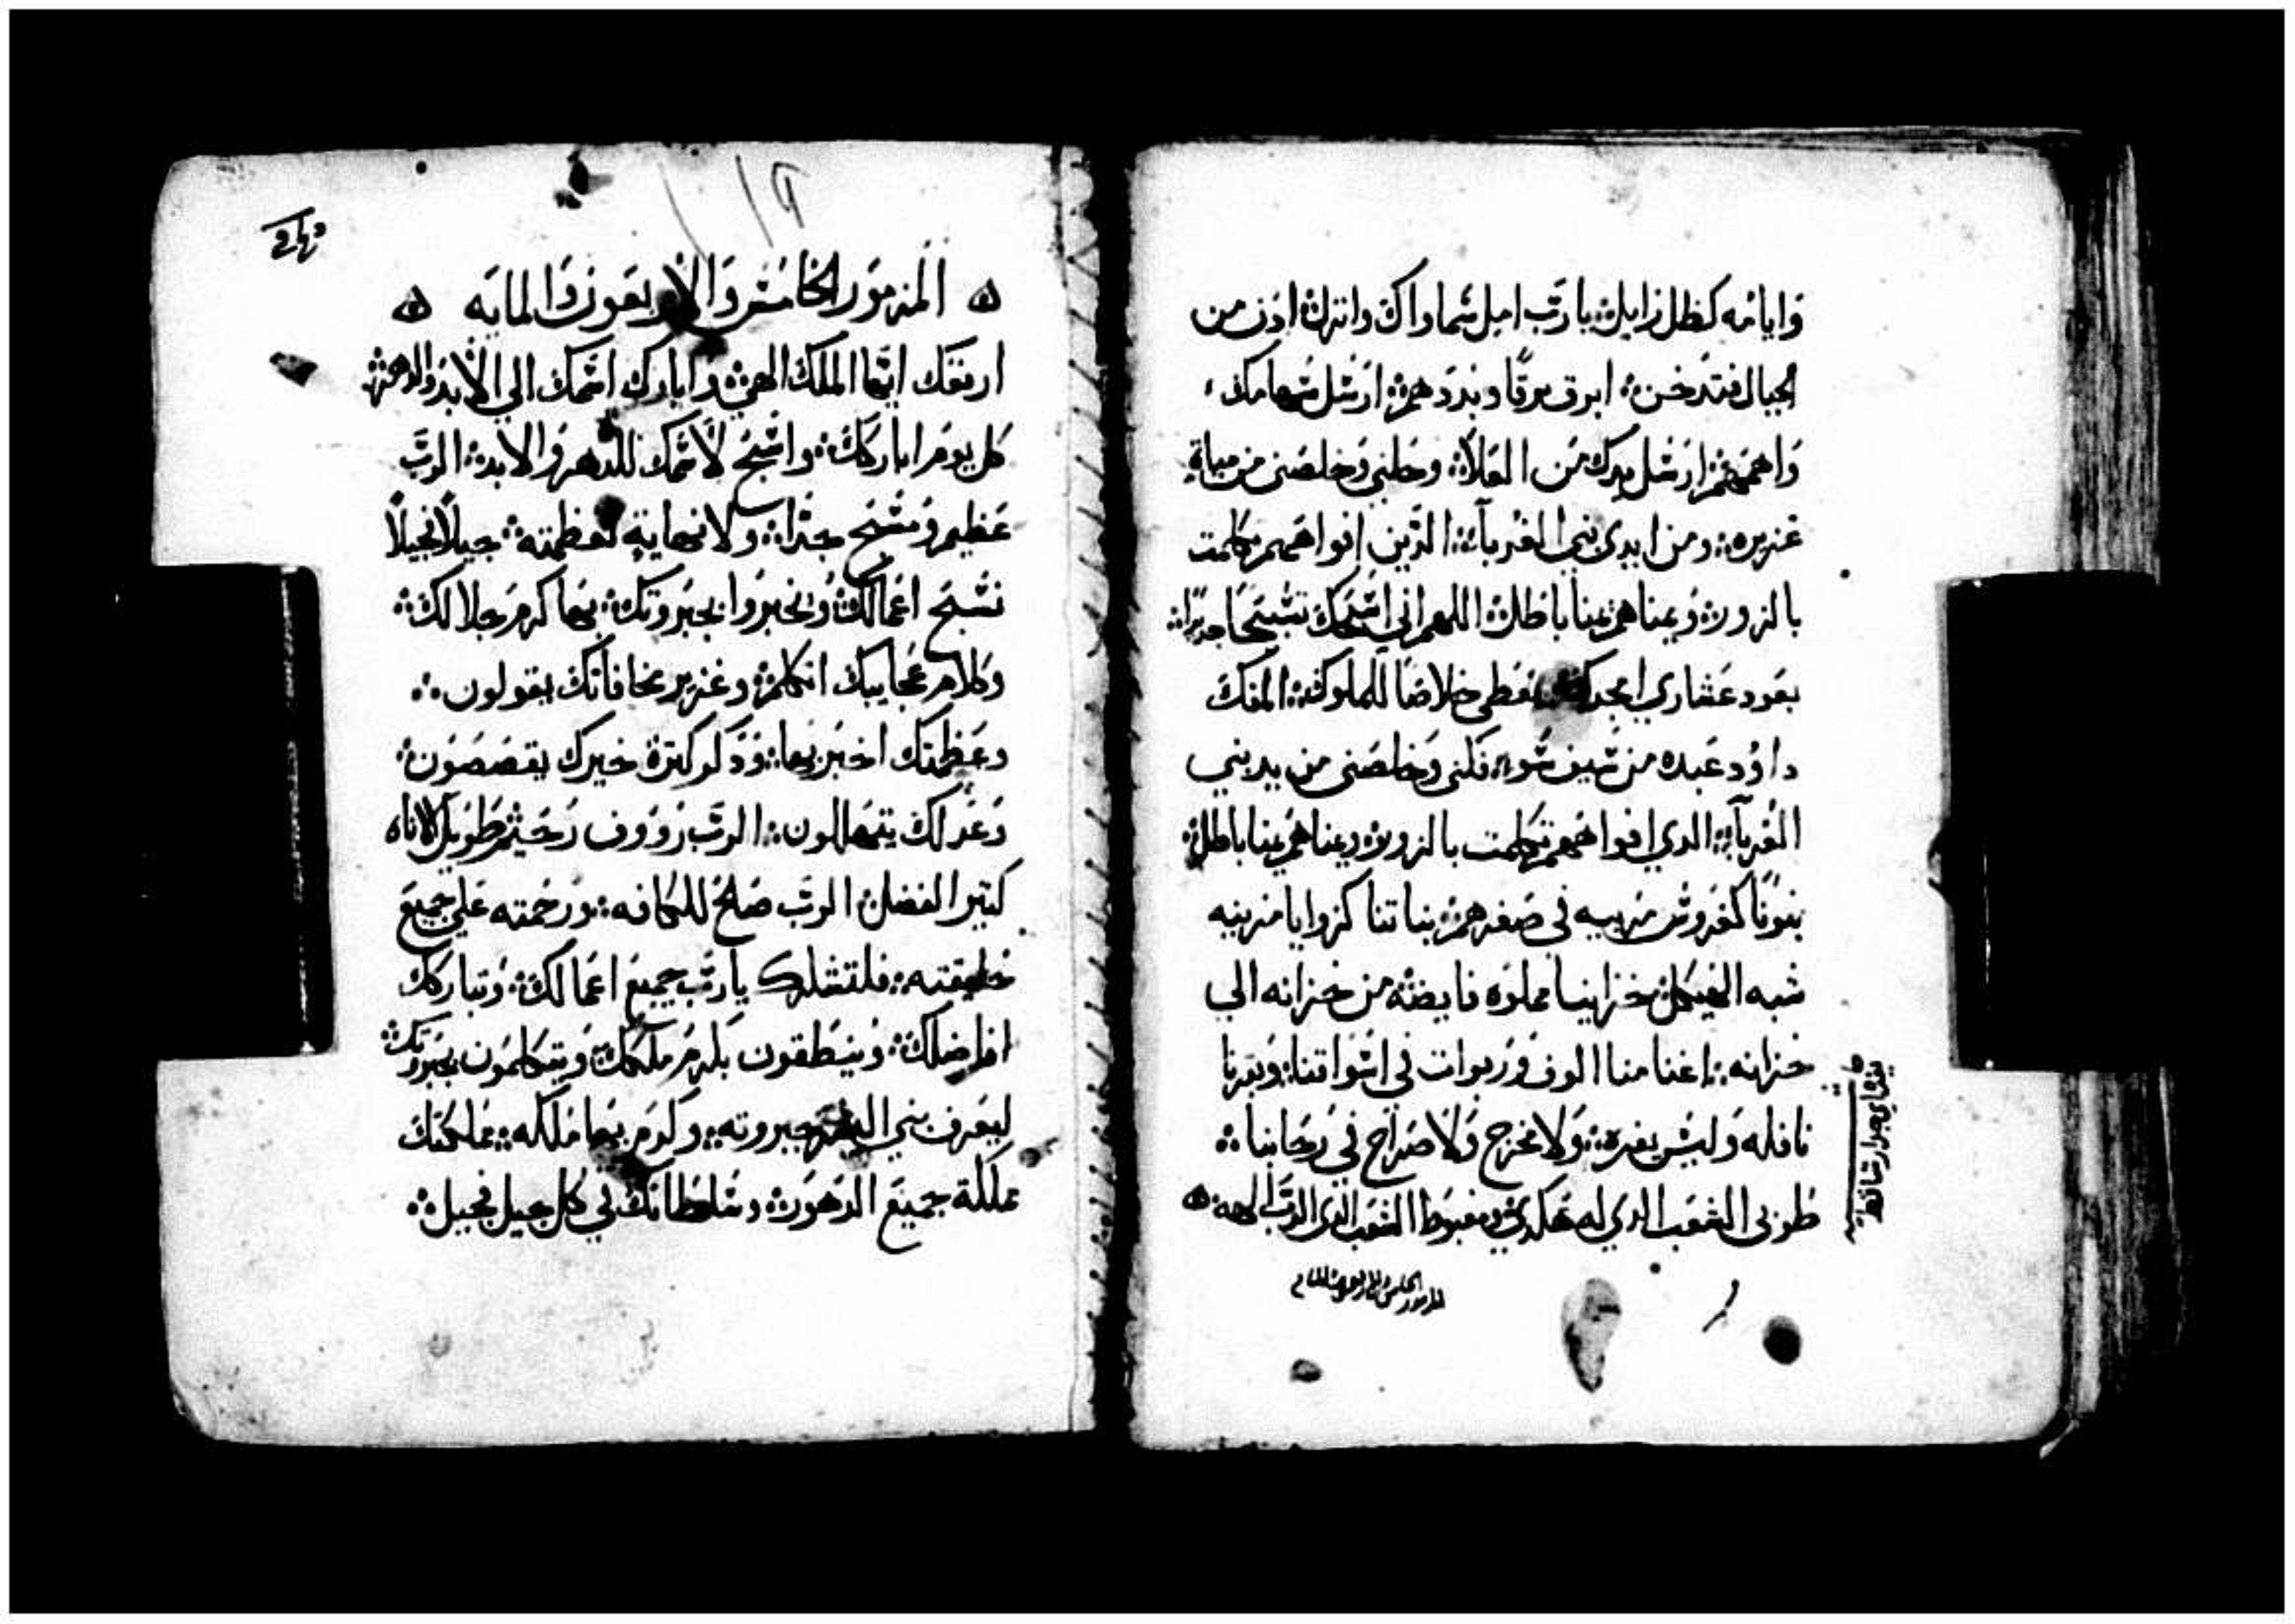 وايامه كظل زايل؛ يا رب امل سماواك وانزل؛ ادن من
الجبال فتدخن؛ ابرق برقا وبددهم؛ ارسل سهامك؛
واهمهم؛ ارسل يدك من العلا؛ وحلني وخلصني من مياة
غزيره؛ ومن ايدي بني الغربآ؛ الذين افواههم تكلمت
بالزور؛ ويمناهم يمنا باطل؛ اللهم اني اسبحك تسبيحا جديدا؛
بعود عشاري امجدك؛ معطي خلاصا للملوك؛ المفك
داوود عبده من سيف سو؛ فكني وخلصني من يد بني
الغربآ؛ الدي افواههم تكلمت بالزور؛ ويمناهم يمنا باطل؛
بنونا كغروس مربيه في صغرهم؛ بناتنا كزوايا مزينه
شبه الهيكل؛ خزايننا مملوه فايضه من خزانه الي
خزانه؛ اغنامنا الوف وربوات في اسواقنا؛ وبقرنا
نافله وليس بغره؛ ولا مخرج ولا صراخ في رحابنا؛
طوبي الشعب الدي له هكدي؛ ومغبوط الشعب الدي الرب الهه ه
المزمور الخامس والاربعون والمايه
ه المزمور الخامس والاربعون والمايه ه
ارفعك ايها الملك الهي؛ وابارك اسمك الي الابد والدهر؛
كل يوم اباركك؛ واسبح لاسمك للدهر والابد؛ الرب
عظيم ومسبح جدا؛ ولا نهاية لعظمته؛ جيلا فجيلا
نسبح اعمالك؛ ونخبروا بجبروتك؛ بها كرم جلالك؛
وكلام عجايبك اتكلم؛ وعزيز مخافاتك يقولون؛
وعظمتك اخبر بها؛ ودكر كترة خيرك يقصصون؛
وعدلك يتهللون؛ الرب رووف رحيم طويل الاناه
كتير الفضل؛ الرب صالح للكافه؛ ورحمته علي جميع
خليقته؛ فلتشكرك يا رب جميع اعمالك؛ وتباركك
افاضلك؛ وينطقون بكرم ملكك؛ ويتكلمون بجبروتك؛
ليعرف بني البشر جبروته؛ وكرم بها ملكه؛ مملكتك
مملكة جميع الدهور؛ وسلطانك في كل جيل فجيل؛